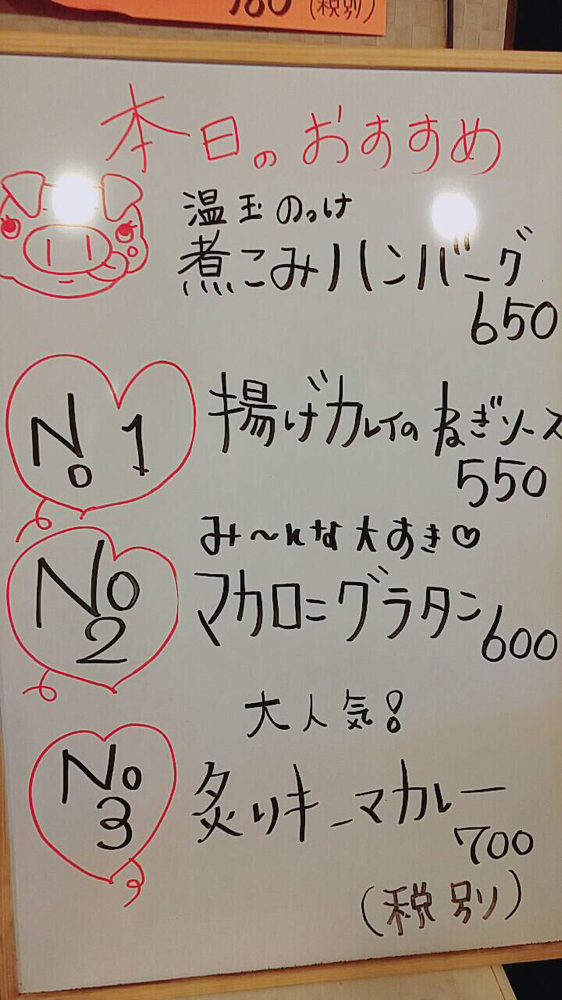 780 (税別)
本日のおすすめ
温玉のっけ
煮こみハンバーグ
650
No 1
揚げカレイのねぎソース
550
み〜んな大すき♡
No 2
マカロニグラタン
600
大人気!
No 3
炙りキーマカレー
700
(税別)